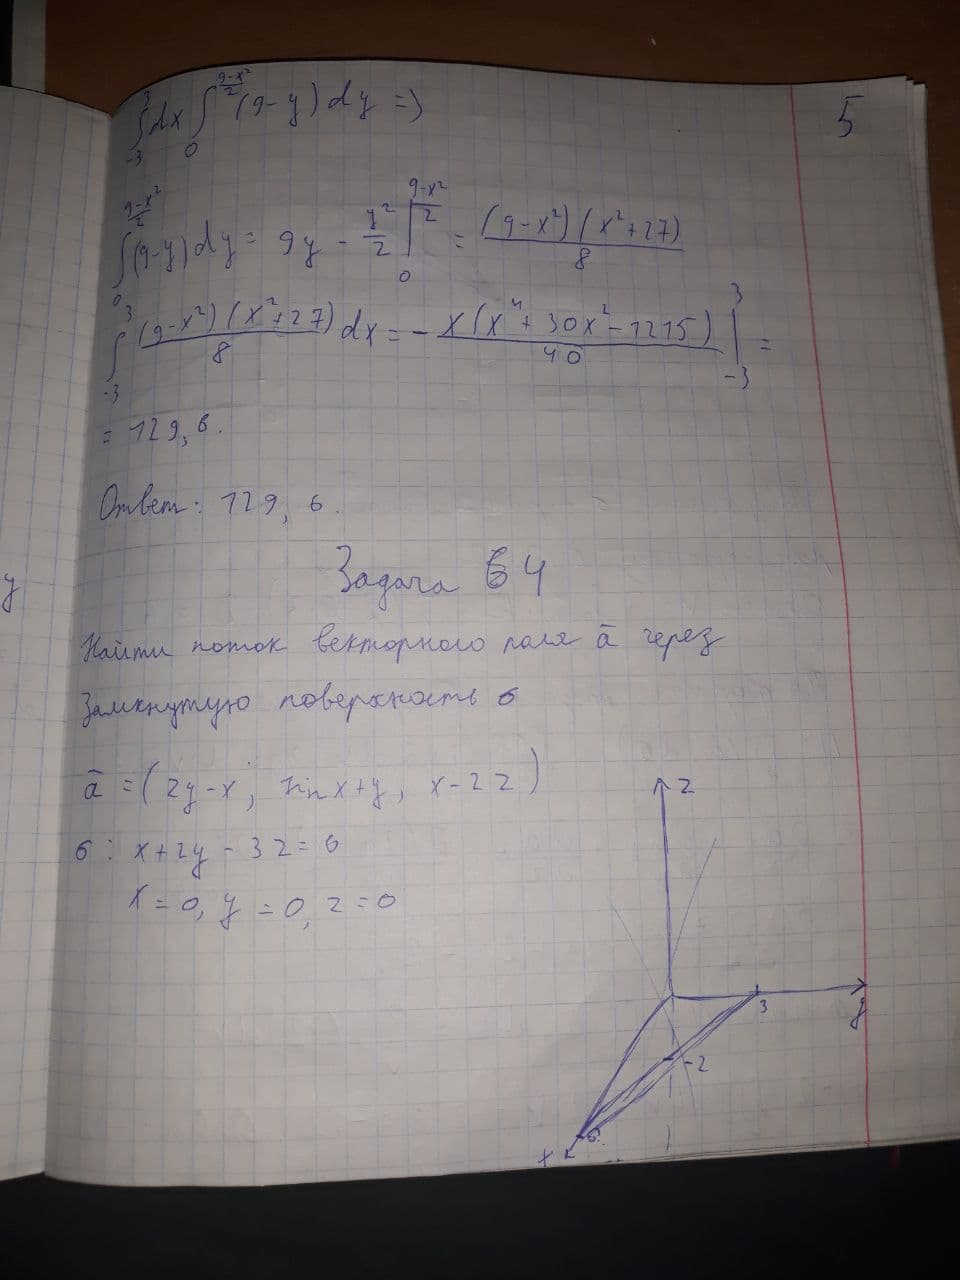 5
∫_{-3}^{3} dx ∫_{0}^{\frac{9-x^2}{2}} (9-y) dy =>
∫_{0}^{\frac{9-x^2}{2}} (9-y) dy = 9y - \frac{y^2}{2} |_{0}^{\frac{9-x^2}{2}} = \frac{(9-x^2)(x^2+27)}{8}
∫_{-3}^{3} \frac{(9-x^2)(x^2+27)}{8} dx = - \frac{x(x^4+30x^2-1215)}{40} |_{-3}^{3} =
= 129,6.
Ответ: 129,6.
Задача 64
Найти поток векторного поля ā через
Замкнутую поверхность σ
ā = (2y-x; sin x+y, x-2z)
σ: x+2y-3z=6
x=0, y=0, z=0
z
3
y
-2
6
x
y